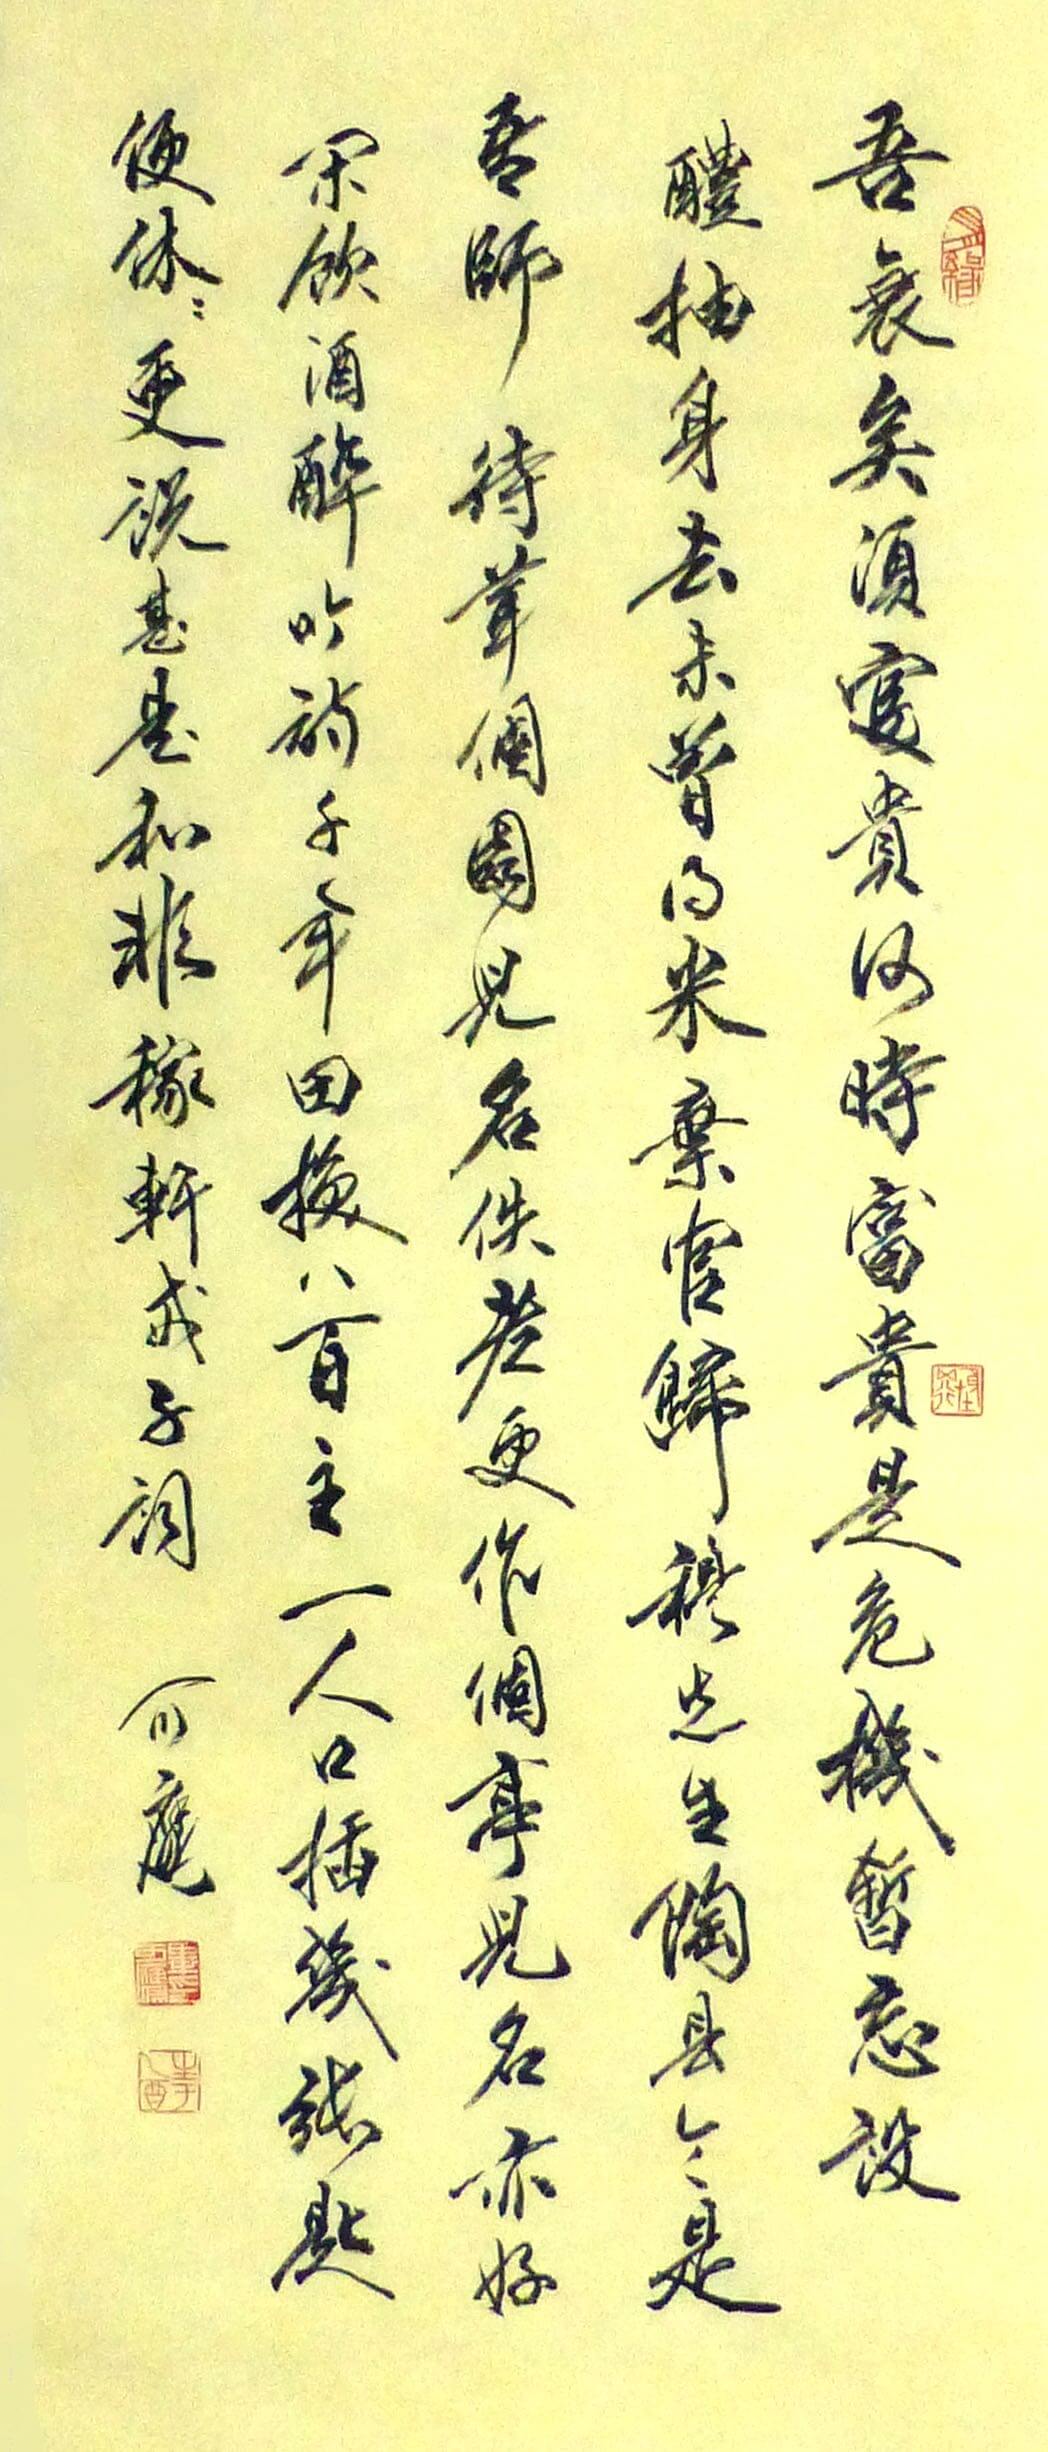 吾衰矣須富貴何時富貴是危機暫忘設
醴抽身去未曾得米棄官歸穆先生陶县令是
吾師待葺個園兒名佚老更作個亭兒名亦好
閑飲酒醉吟詩千年田換八百主一人口插幾張匙
便休〻更說甚是和非稼軒戒子詞 庵